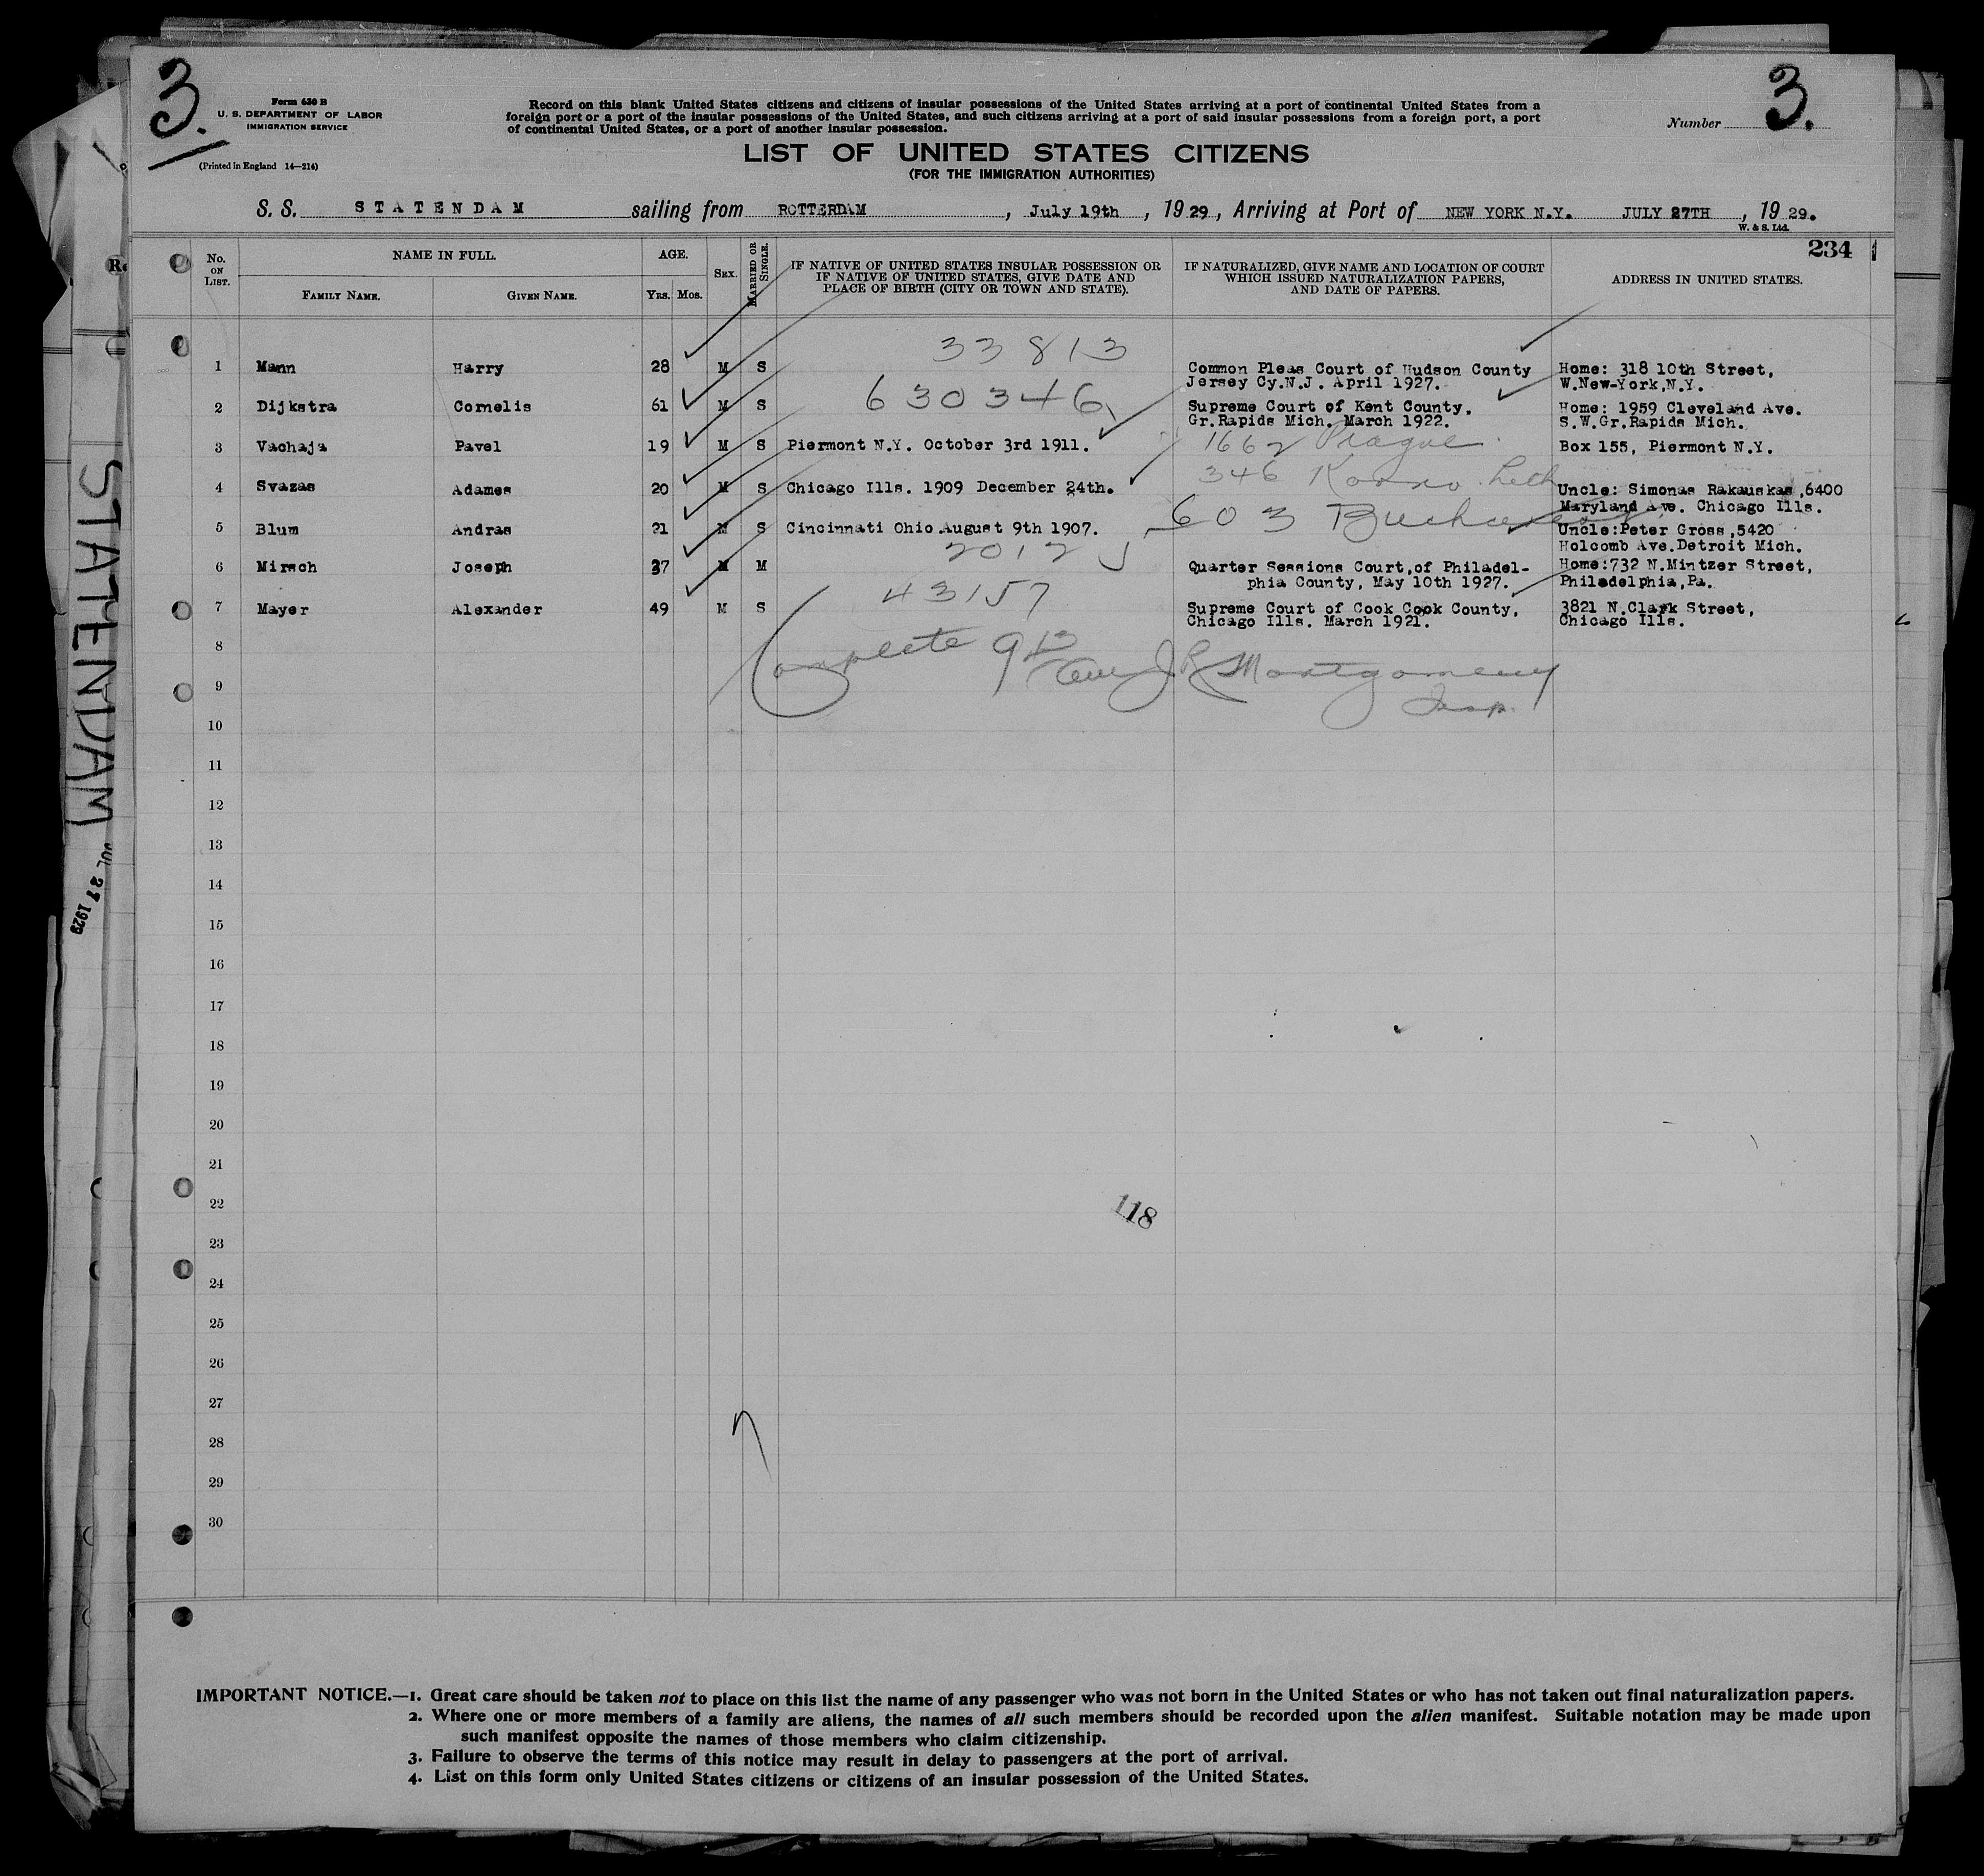 3.
Form 630 B
U. S. DEPARTMENT OF LABOR
IMMIGRATION SERVICE
(Printed in England 14—214)
Record on this blank United States citizens and citizens of insular possessions of the United States arriving at a port of continental United States from a
foreign port or a port of the insular possessions of the United States, and such citizens arriving at a port of said insular possessions from a foreign port, a port
of continental United States, or a port of another insular possession.
Number 3.
LIST OF UNITED STATES CITIZENS
(FOR THE IMMIGRATION AUTHORITIES)
S. S. STATENDAM sailing from ROTTERDAM, July 19th, 1929, Arriving at Port of NEW YORK N.Y. JULY 27TH, 1929.
W. & S. Ltd.
234
No. ON LIST.
NAME IN FULL.
FAMILY NAME. GIVEN NAME.
AGE.
YRS. MOS.
SEX.
MARRIED OR SINGLE.
IF NATIVE OF UNITED STATES INSULAR POSSESSION OR
IF NATIVE OF UNITED STATES, GIVE DATE AND
PLACE OF BIRTH (CITY OR TOWN AND STATE).
IF NATURALIZED, GIVE NAME AND LOCATION OF COURT
WHICH ISSUED NATURALIZATION PAPERS,
AND DATE OF PAPERS.
ADDRESS IN UNITED STATES.
33813
1 Mann Harry 28 M S Common Pleas Court of Hudson County Home: 318 10th Street,
Jersey Cy.N.J. April 1927. W.New-York,N.Y.
630346
2 Dijkstra Cornelis 61 M S Supreme Court of Kent County. Home: 1959 Cleveland Ave.
Gr.Rapids Mich. March 1922. S.W.Gr.Rapids Mich.
1662 Prague
3 Vachaja Pavel 19 M S Piermont N.Y. October 3rd 1911. Box 155, Piermont N.Y.
346 Kovno Lith
4 Svazas Adames 20 M S Chicago Ills. 1909 December 24th. Uncle: Simonas Rakauskas,6400
Maryland Ave. Chicago Ills.
603 Bucharest
5 Blum Andras 21 M S Cincinnati Ohio August 9th 1907. Uncle:Peter Gross,5420
Holcomb Ave.Detroit Mich.
2012
6 Mirsch Joseph 37 M M Quarter Sessions Court,of Philadel- Home:732 N.Mintzer Street,
phia County, May 10th 1927. Philadelphia,Pa.
43157
7 Mayer Alexander 49 M S Supreme Court of Cook Cook County, 3821 N.Clark Street,
Chicago Ills. March 1921. Chicago Ills.
Complete J R Montgomery
Insp.
8
9
10
11
12
13
14
15
16
17
18
19
20
21
22
118
23
24
25
26
27
28
29
30
IMPORTANT NOTICE.—1. Great care should be taken not to place on this list the name of any passenger who was not born in the United States or who has not taken out final naturalization papers.
2. Where one or more members of a family are aliens, the names of all such members should be recorded upon the alien manifest. Suitable notation may be made upon
such manifest opposite the names of those members who claim citizenship.
3. Failure to observe the terms of this notice may result in delay to passengers at the port of arrival.
4. List on this form only United States citizens or citizens of an insular possession of the United States.
STATENDAM
JUL 27 1929